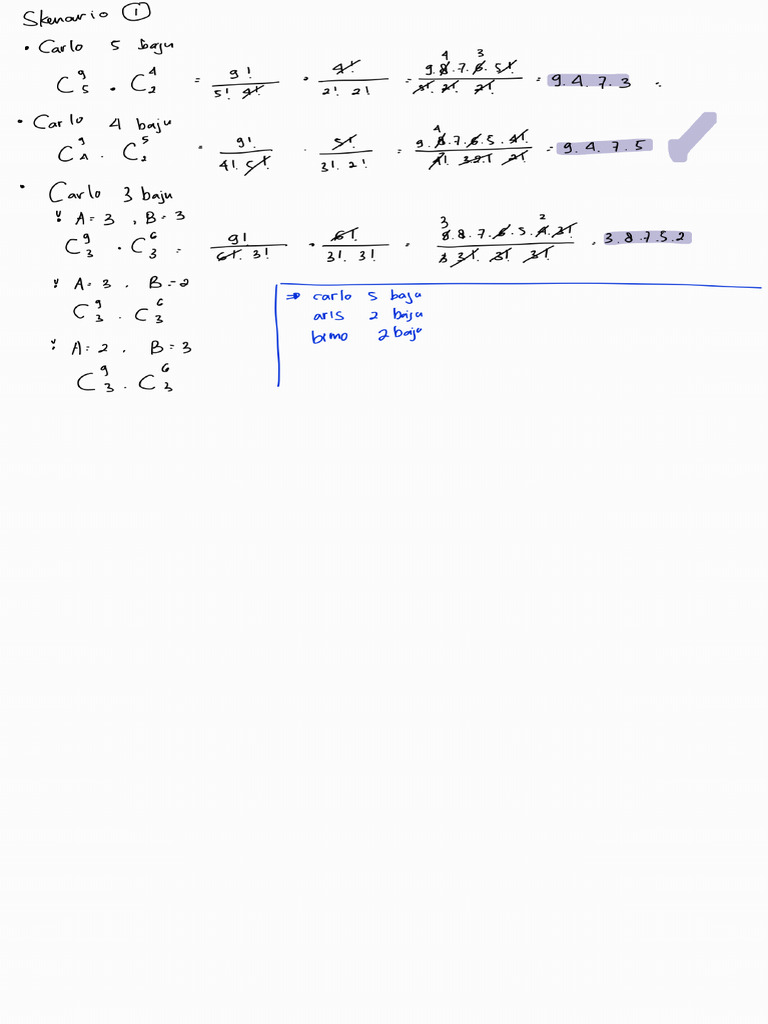 Skenario ①
• Carlo 5 baju
C⁹₅ . C⁴₂ = 9! / 5! 4! . 4! / 2! 2! = 9.8.7.6.5! / 5! 2! 2! 4 3 = 9.4.7.3
• Carlo 4 baju
C⁹₄ . C⁵₂ . 9! / 4! 5! . 5! / 3! 2! = 9.8.7.6.5.4! / 4! 3.2.1 2! 4 = 9.4.7.5
• Carlo 3 baju
A = 3 , B = 3
C⁹₃ . C⁶₃ = 9! / 6! 3! . 6! / 3! 3! = 9.8.7.6.5.4.3! / 3 3! 3! 3! 3 2 . 3.8.7.5.2
A = 3 . B = 2
C⁹₃ . C⁶₃
A = 2 . B = 3
C⁹₃ . C⁶₃
⇒ carlo 5 baju
aris 2 baju
bimo 2 baju